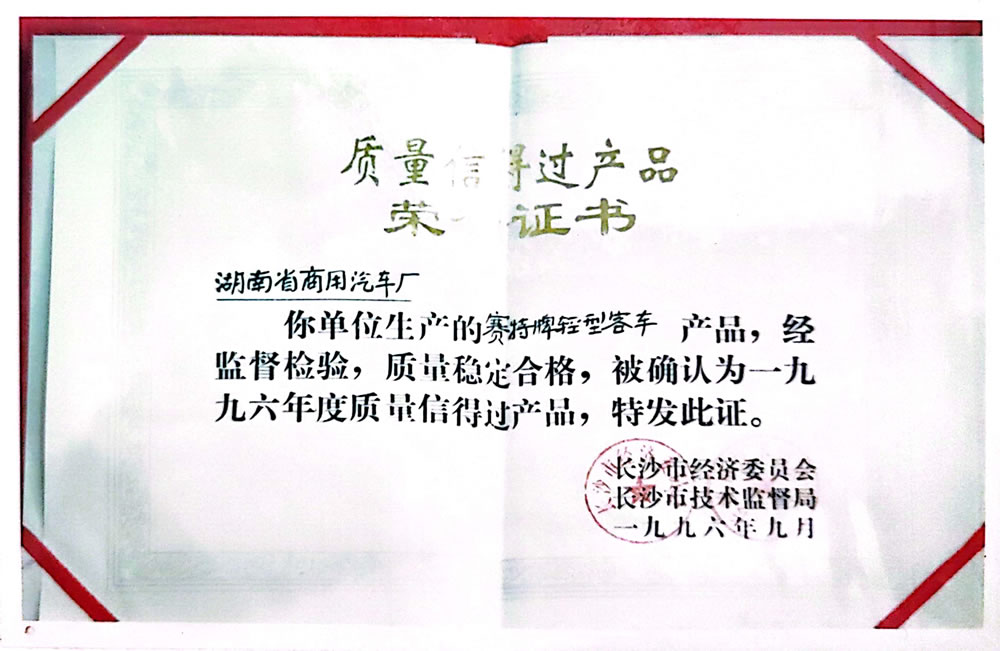 质量信得过产品
荣 证书
湖南省商用汽车厂
你单位生产的赛特牌轻型客车 产品，经
监督检验，质量稳定合格，被确认为一九
九六年度质量信得过产品，特发此证。
长沙市经济委员会
长沙市技术监督局
一九九六年九月